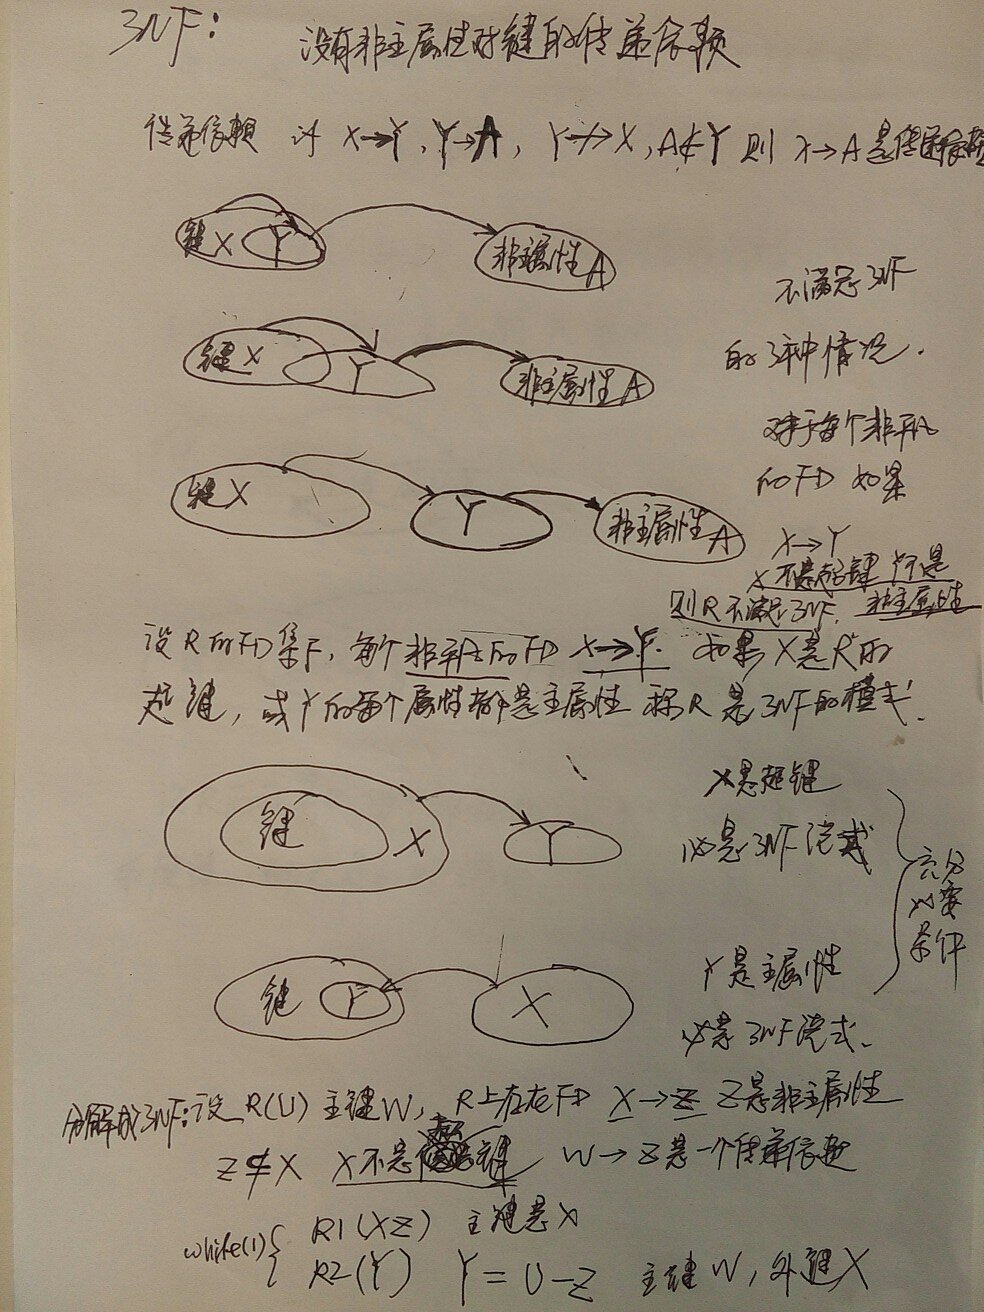 3NF: 没有非主属性对键的传递依赖
传递依赖 对 X→Y, Y→A, Y↛X, A⊄Y 则 X→A 是传递依赖
键 X Y 非主属性 A
不满足 3NF
键 X Y 非主属性 A
的 3种情况.
对于每个非平凡
的 FD 如果
键 X Y 非主属性 A
X→Y
X 不是超键 Y不是
则 R 不满足 3NF. 非主属性
设 R 的 FD 集 F, 每个 非平凡的 FD X→Y. 如果 X 是 R 的
超键, 或 Y 的每个属性都是主属性 称 R 是 3NF 的模式.
X是超键
键 X Y
必是 3NF 范式
充分
必要
条件
Y 是主属性
键 Y X
必是 3NF 范式.
分解成3NF: 设 R(U) 主键 W, R上存在 FD X→Z Z是非主属性
Z⊄X X 不是 键 W→Z 是一个传递依赖
while(1){ R1(XZ) 主键是 X
R2(Y) Y=U-Z 主键 W, 外键 X